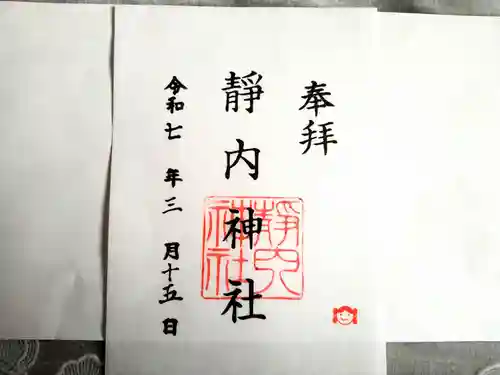 奉拝
靜内神社
靜内神社
令和七年三月十五日